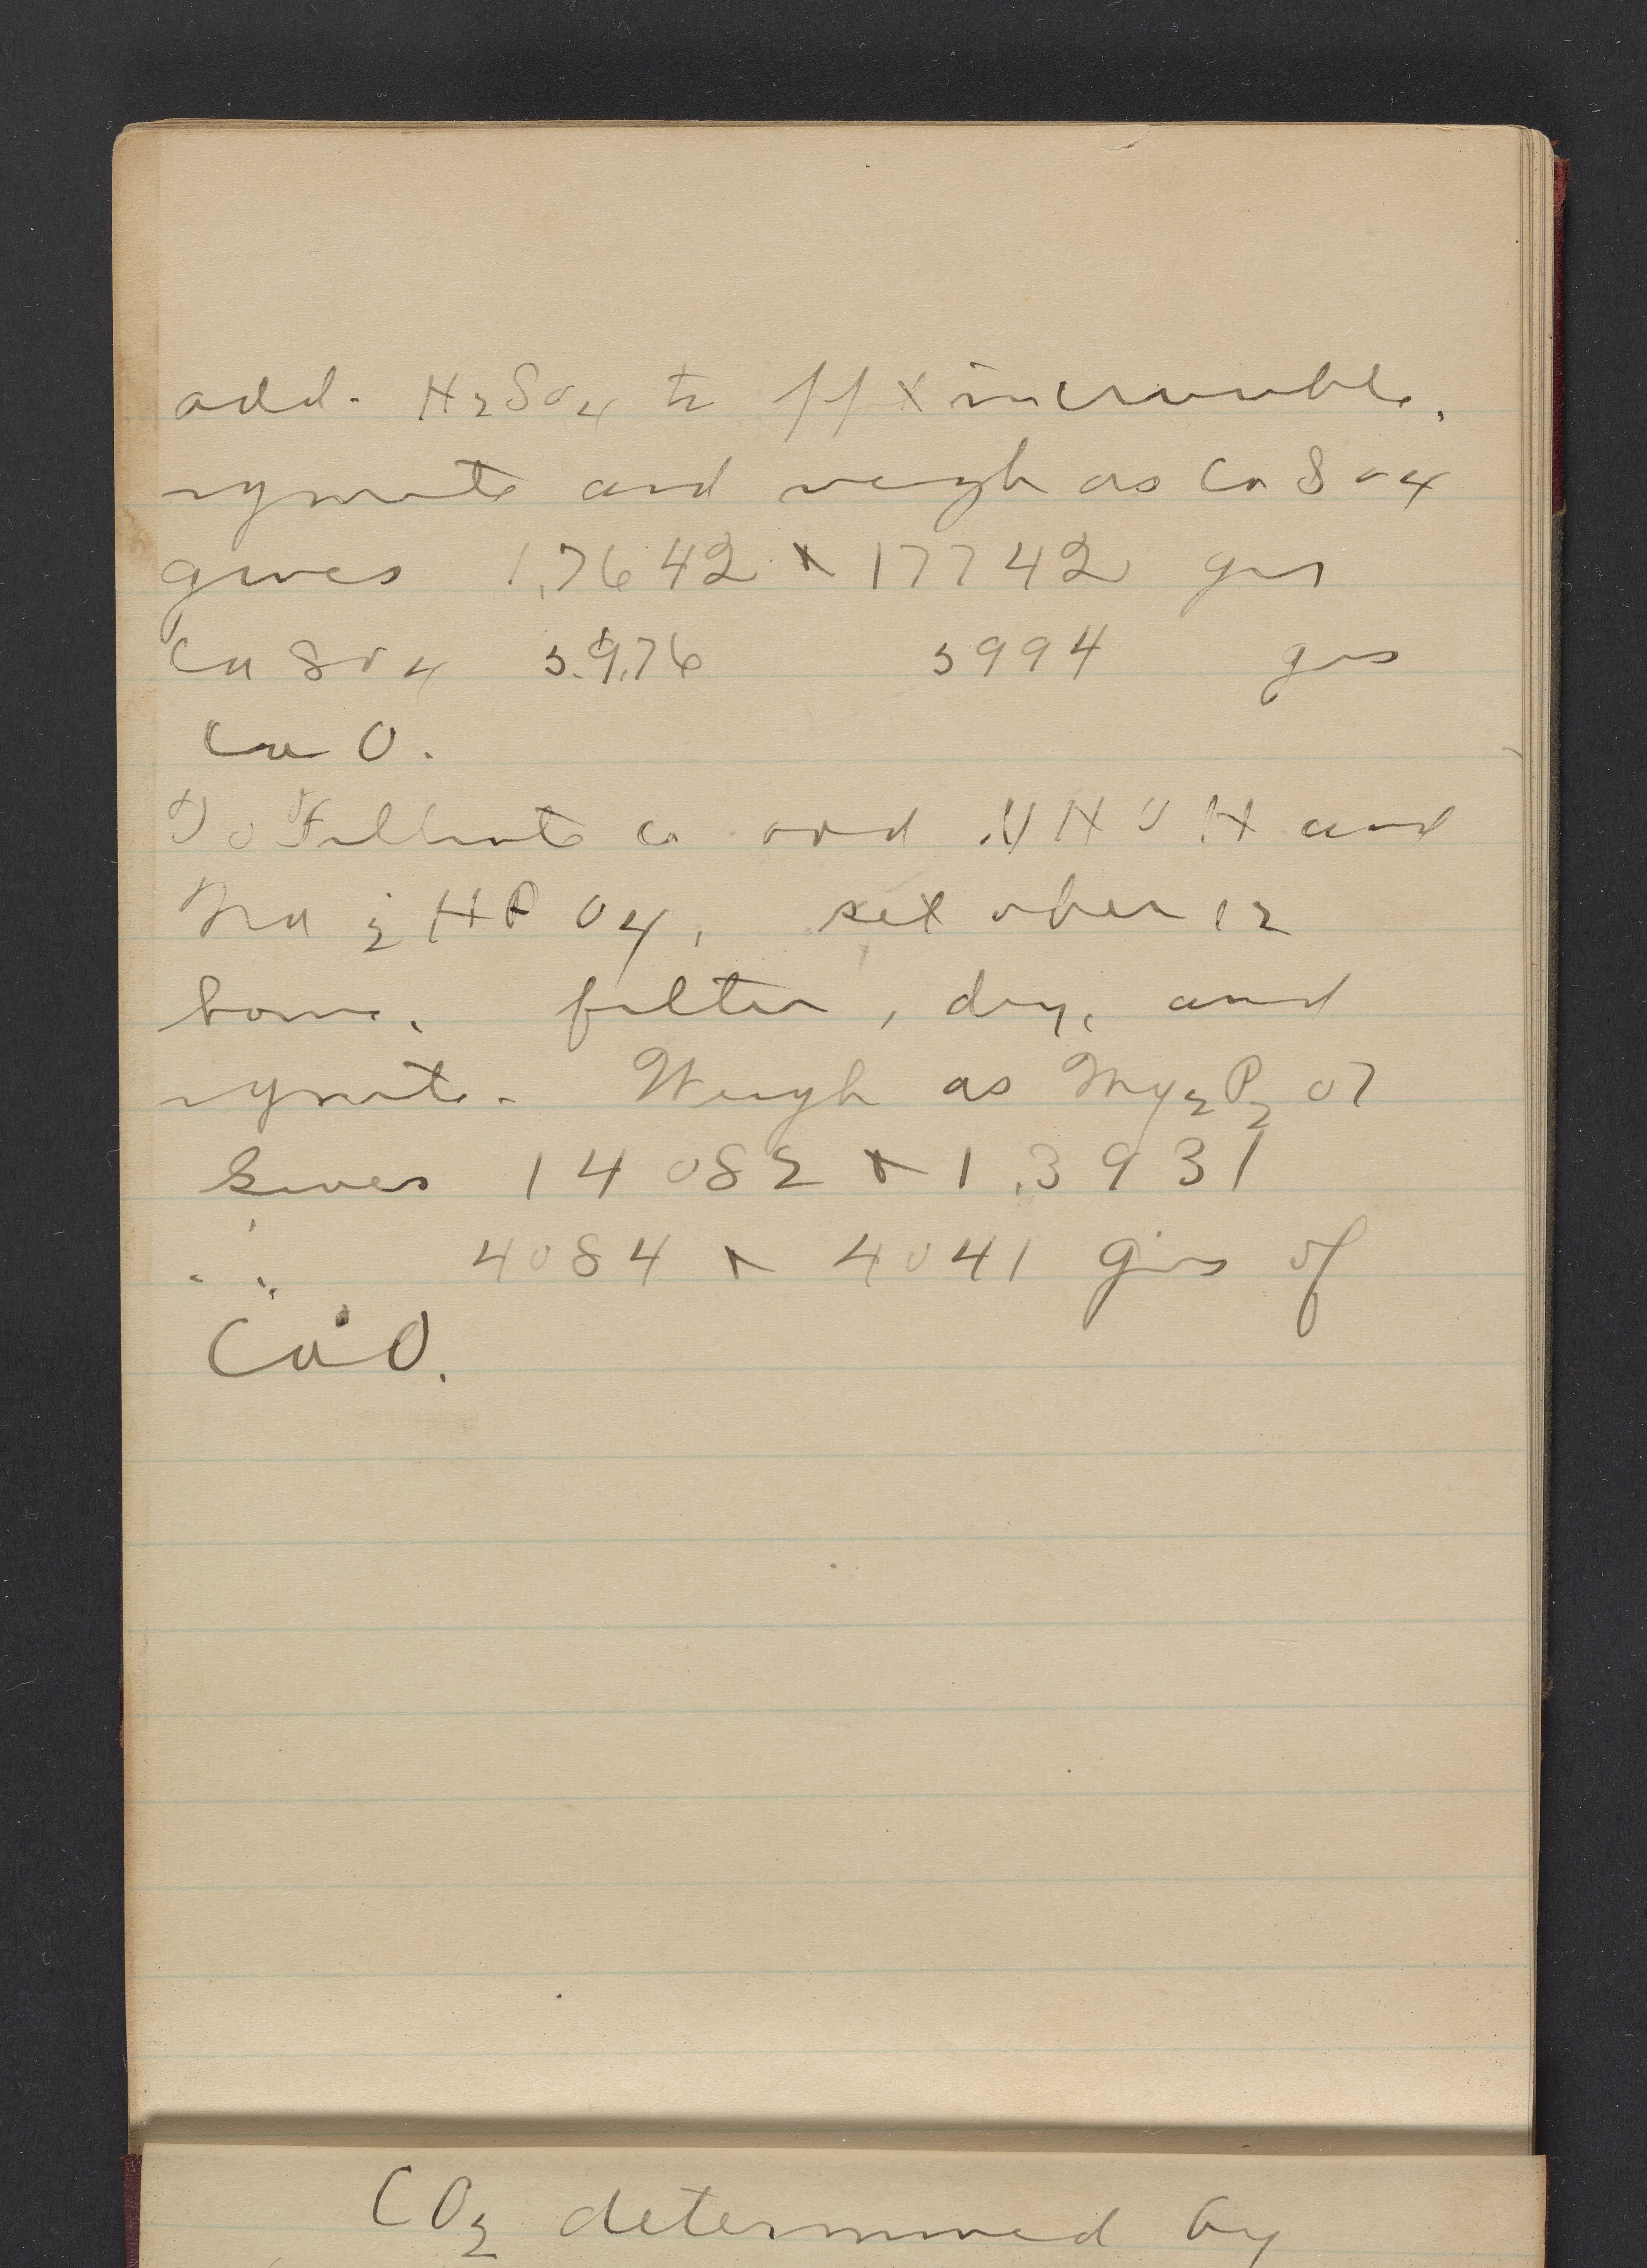 add. H2SO4 to ppt in crucible.
ignite and weigh as CaSO4
gives 1,7642 & 17742 gms
CaSO4 5.9.76 5994 gms
CaO.
To Filtrate a add NHOH and
Na2HPO4, set over 12
hours. filter, dry, and
ignite. Weigh as Mg2P2O7
Gives 14082 & 1.3931
∴ 4084 & 4041 gms of
CaO.
CO2 determined by